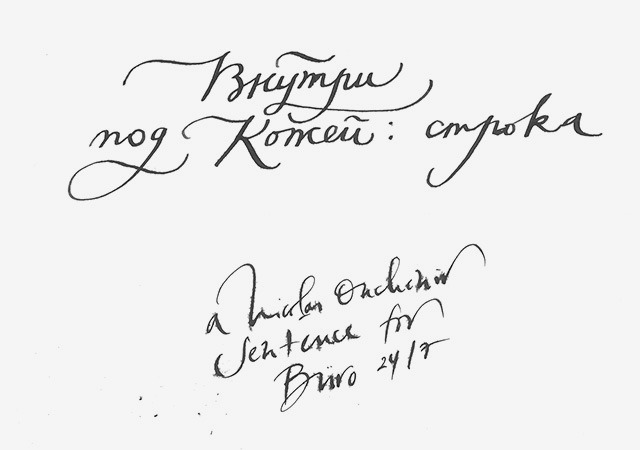 Внутри
под Кожей: строка
a Nicolas Ouchenir
Sentence for
Büro 24/7